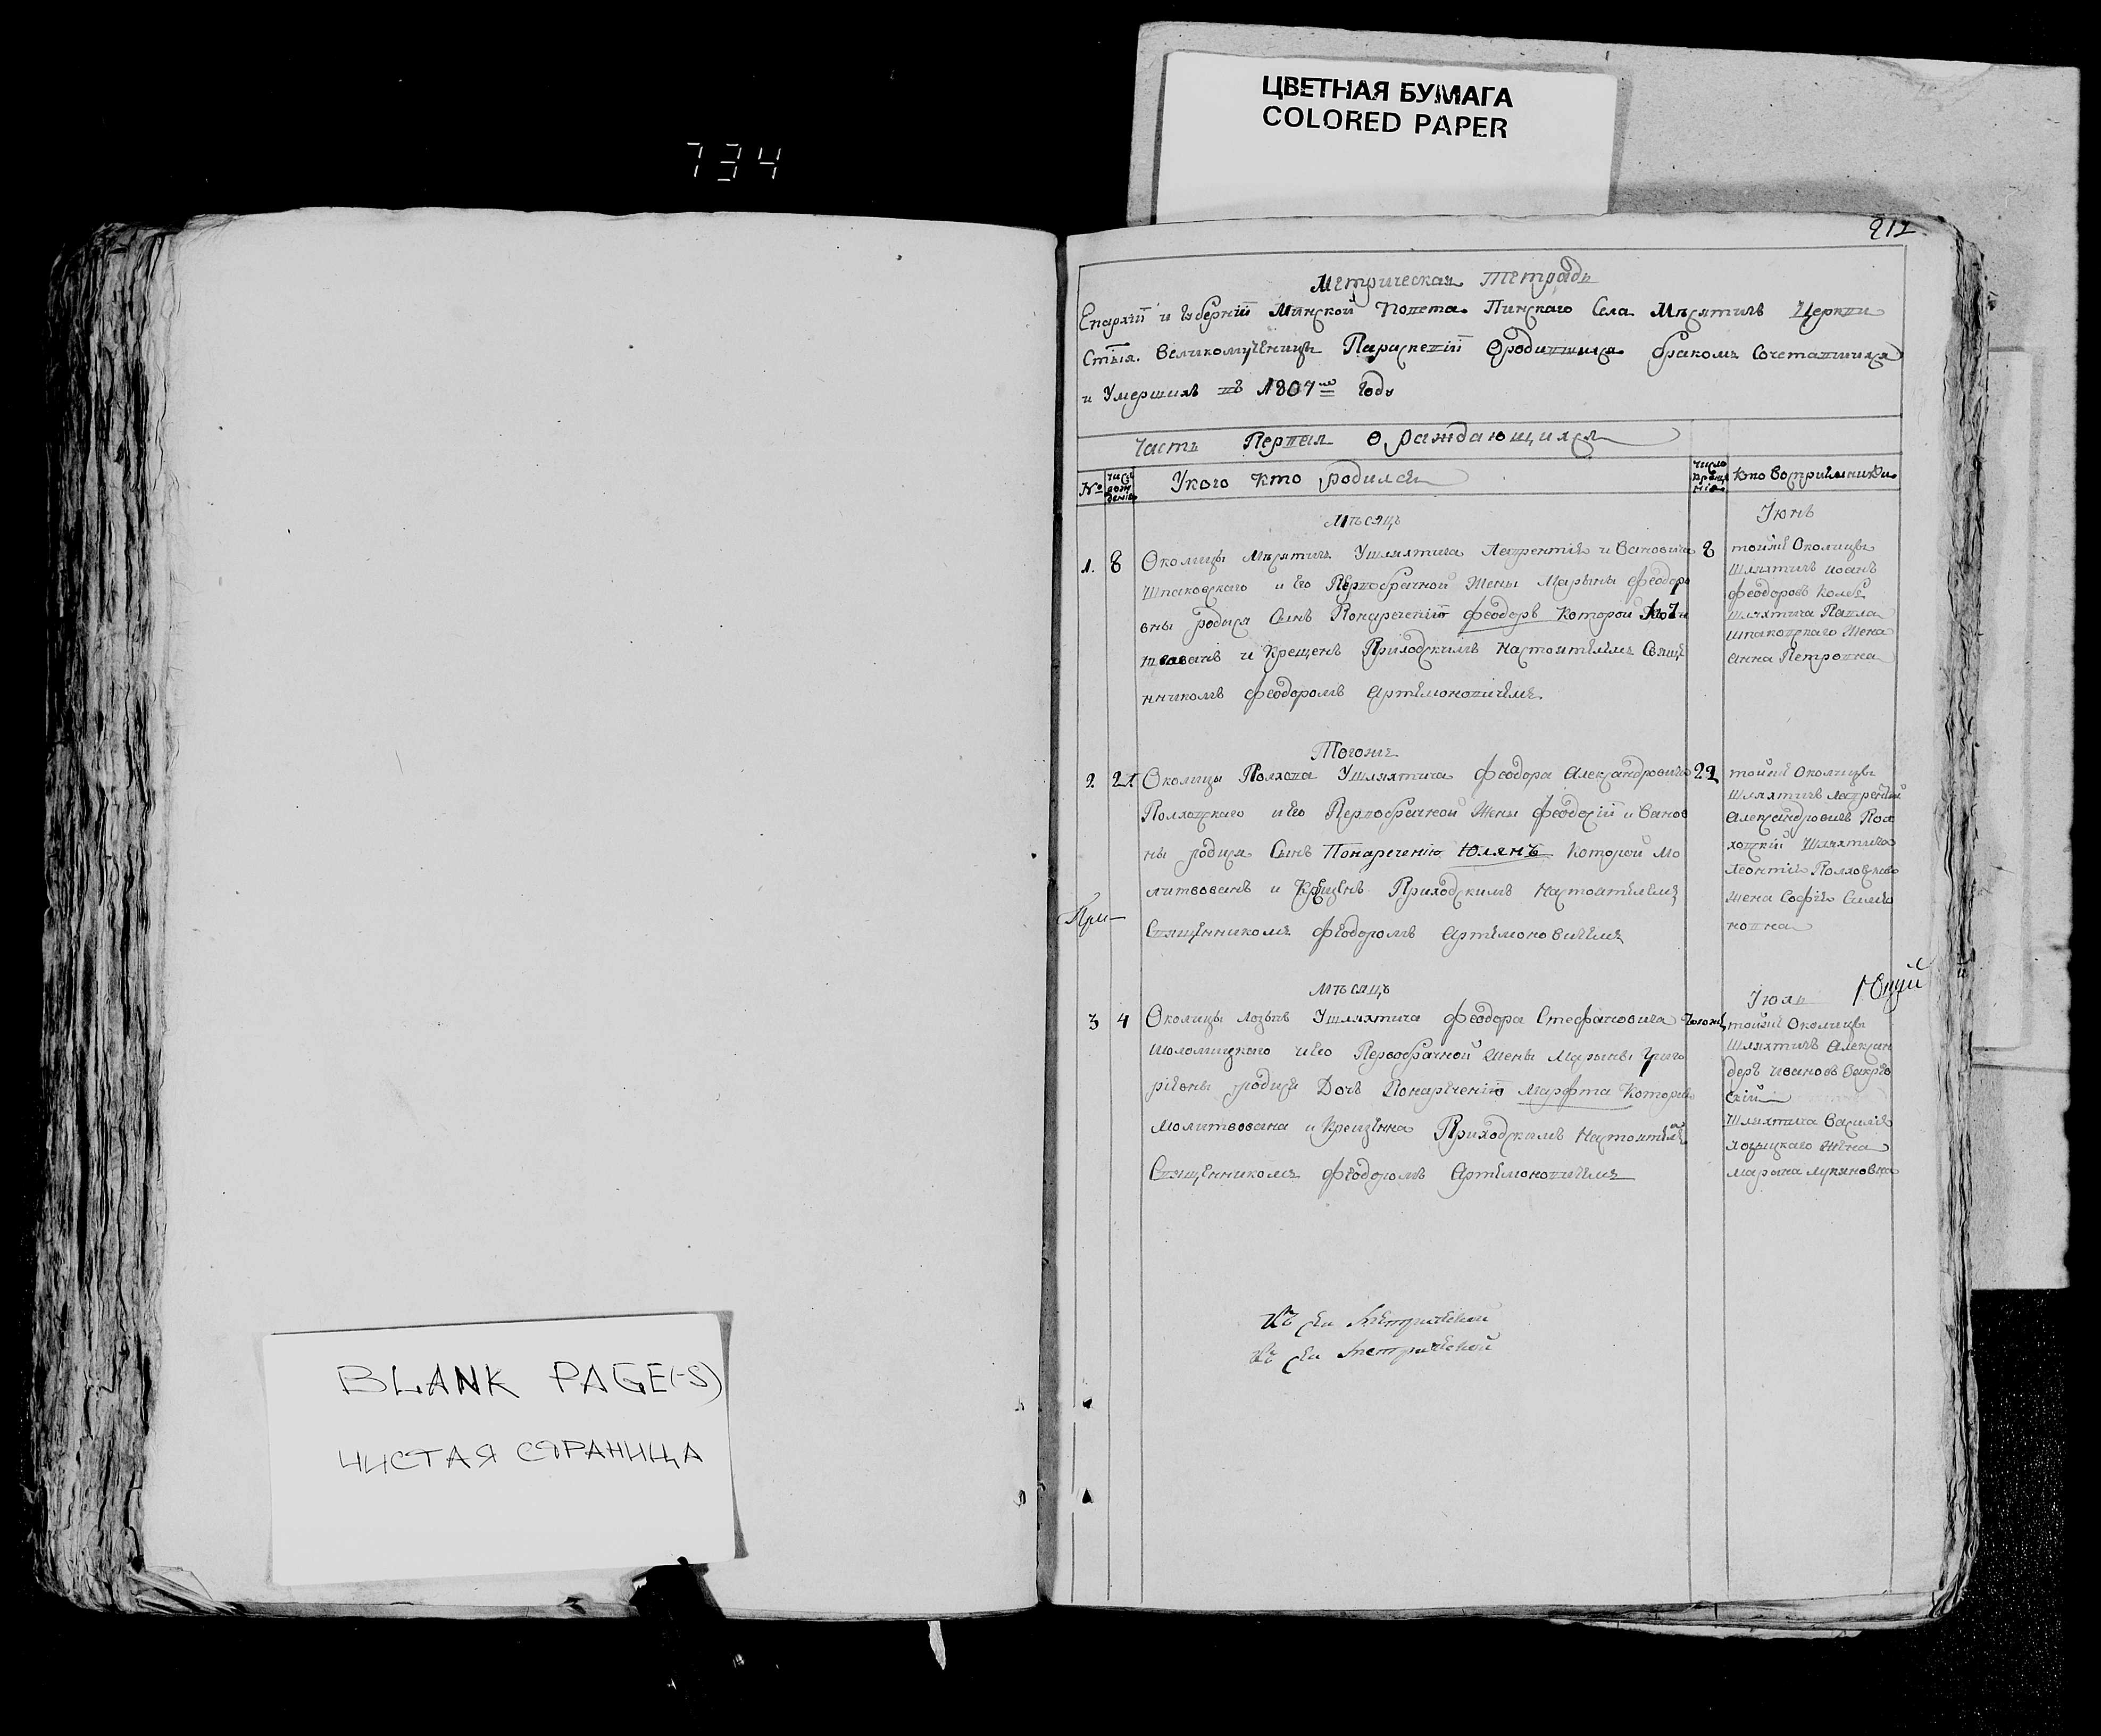 ЦВЕТНАЯ БУМАГА
COLORED PAPER
734
212
Метрическая Тетрадь
Епархїи и Губернїи Минской Повета Пинскаго Села Мѣсятичъ Церкви
Стыя Великомученицы Параскевїи Ородившися бракомъ Сочетавшихся
и Умершихъ въ 1807мъ Году
Часть Первая О раждающихся
№ число рожденїя Укого кто родился число крещенїя кто воспрїемники
Мѣсяцъ Іюнь
1. 8 Околицы Мѣсятичъ Ушляхтича Лаврентїя Ивановича 8
Шпаковскаго и его Первобрачной Жены Марыны Феодоро
вны родися Сынъ Понареченїю Феодоръ Которой
и Крещенъ Приходскимъ Настоятелемъ Свяще
нникомъ Феодоромъ Артемоновичемъ
тойже Околицы
шляхтичъ Иоанъ
Феодоровъ
шляхтича Павла
шпаковскаго Жена
Анна Петровна
Тогоже
2. 21 Околицы Полхова Ушляхтича Феодора Александровича 22
Полховскаго иего Первобрачной Жены Феодосїи Иванов
ны родися Сынъ Понареченїю Юлянъ Которой мо
литвованъ и Крещенъ Приходскимъ Настоятелемъ
Священникомъ Феодоромъ Артемоновичемъ
тойже Околицы
Шляхтичъ Лаврентїй
Александровичъ Пол
ховскїй Шляхтича
Леонтїя Полховскаго
Жена Софїя Симео
новна
При
Мѣсяцъ Іюль
3 4 Околицы Ушляхтича Феодора Стефановича тогожъ
Шоломицкаго иего Первобрачной жены Марыны Григо
рїевны родися Дочъ Понареченїю Марфта Которая
Молитвована и Крещенна Приходскимъ Настоятелемъ
Священникомъ Феодоромъ Артемоновичемъ
тойже Околицы
Шляхтичъ Алексан
деръ Ивановъ
скїй
Шляхтича Василїя
Жена
Марына Лукяновна
Къ сей Метрической
Къ сей Метрической
BLANK PAGE(-S)
ЧИСТАЯ СТРАНИЦА